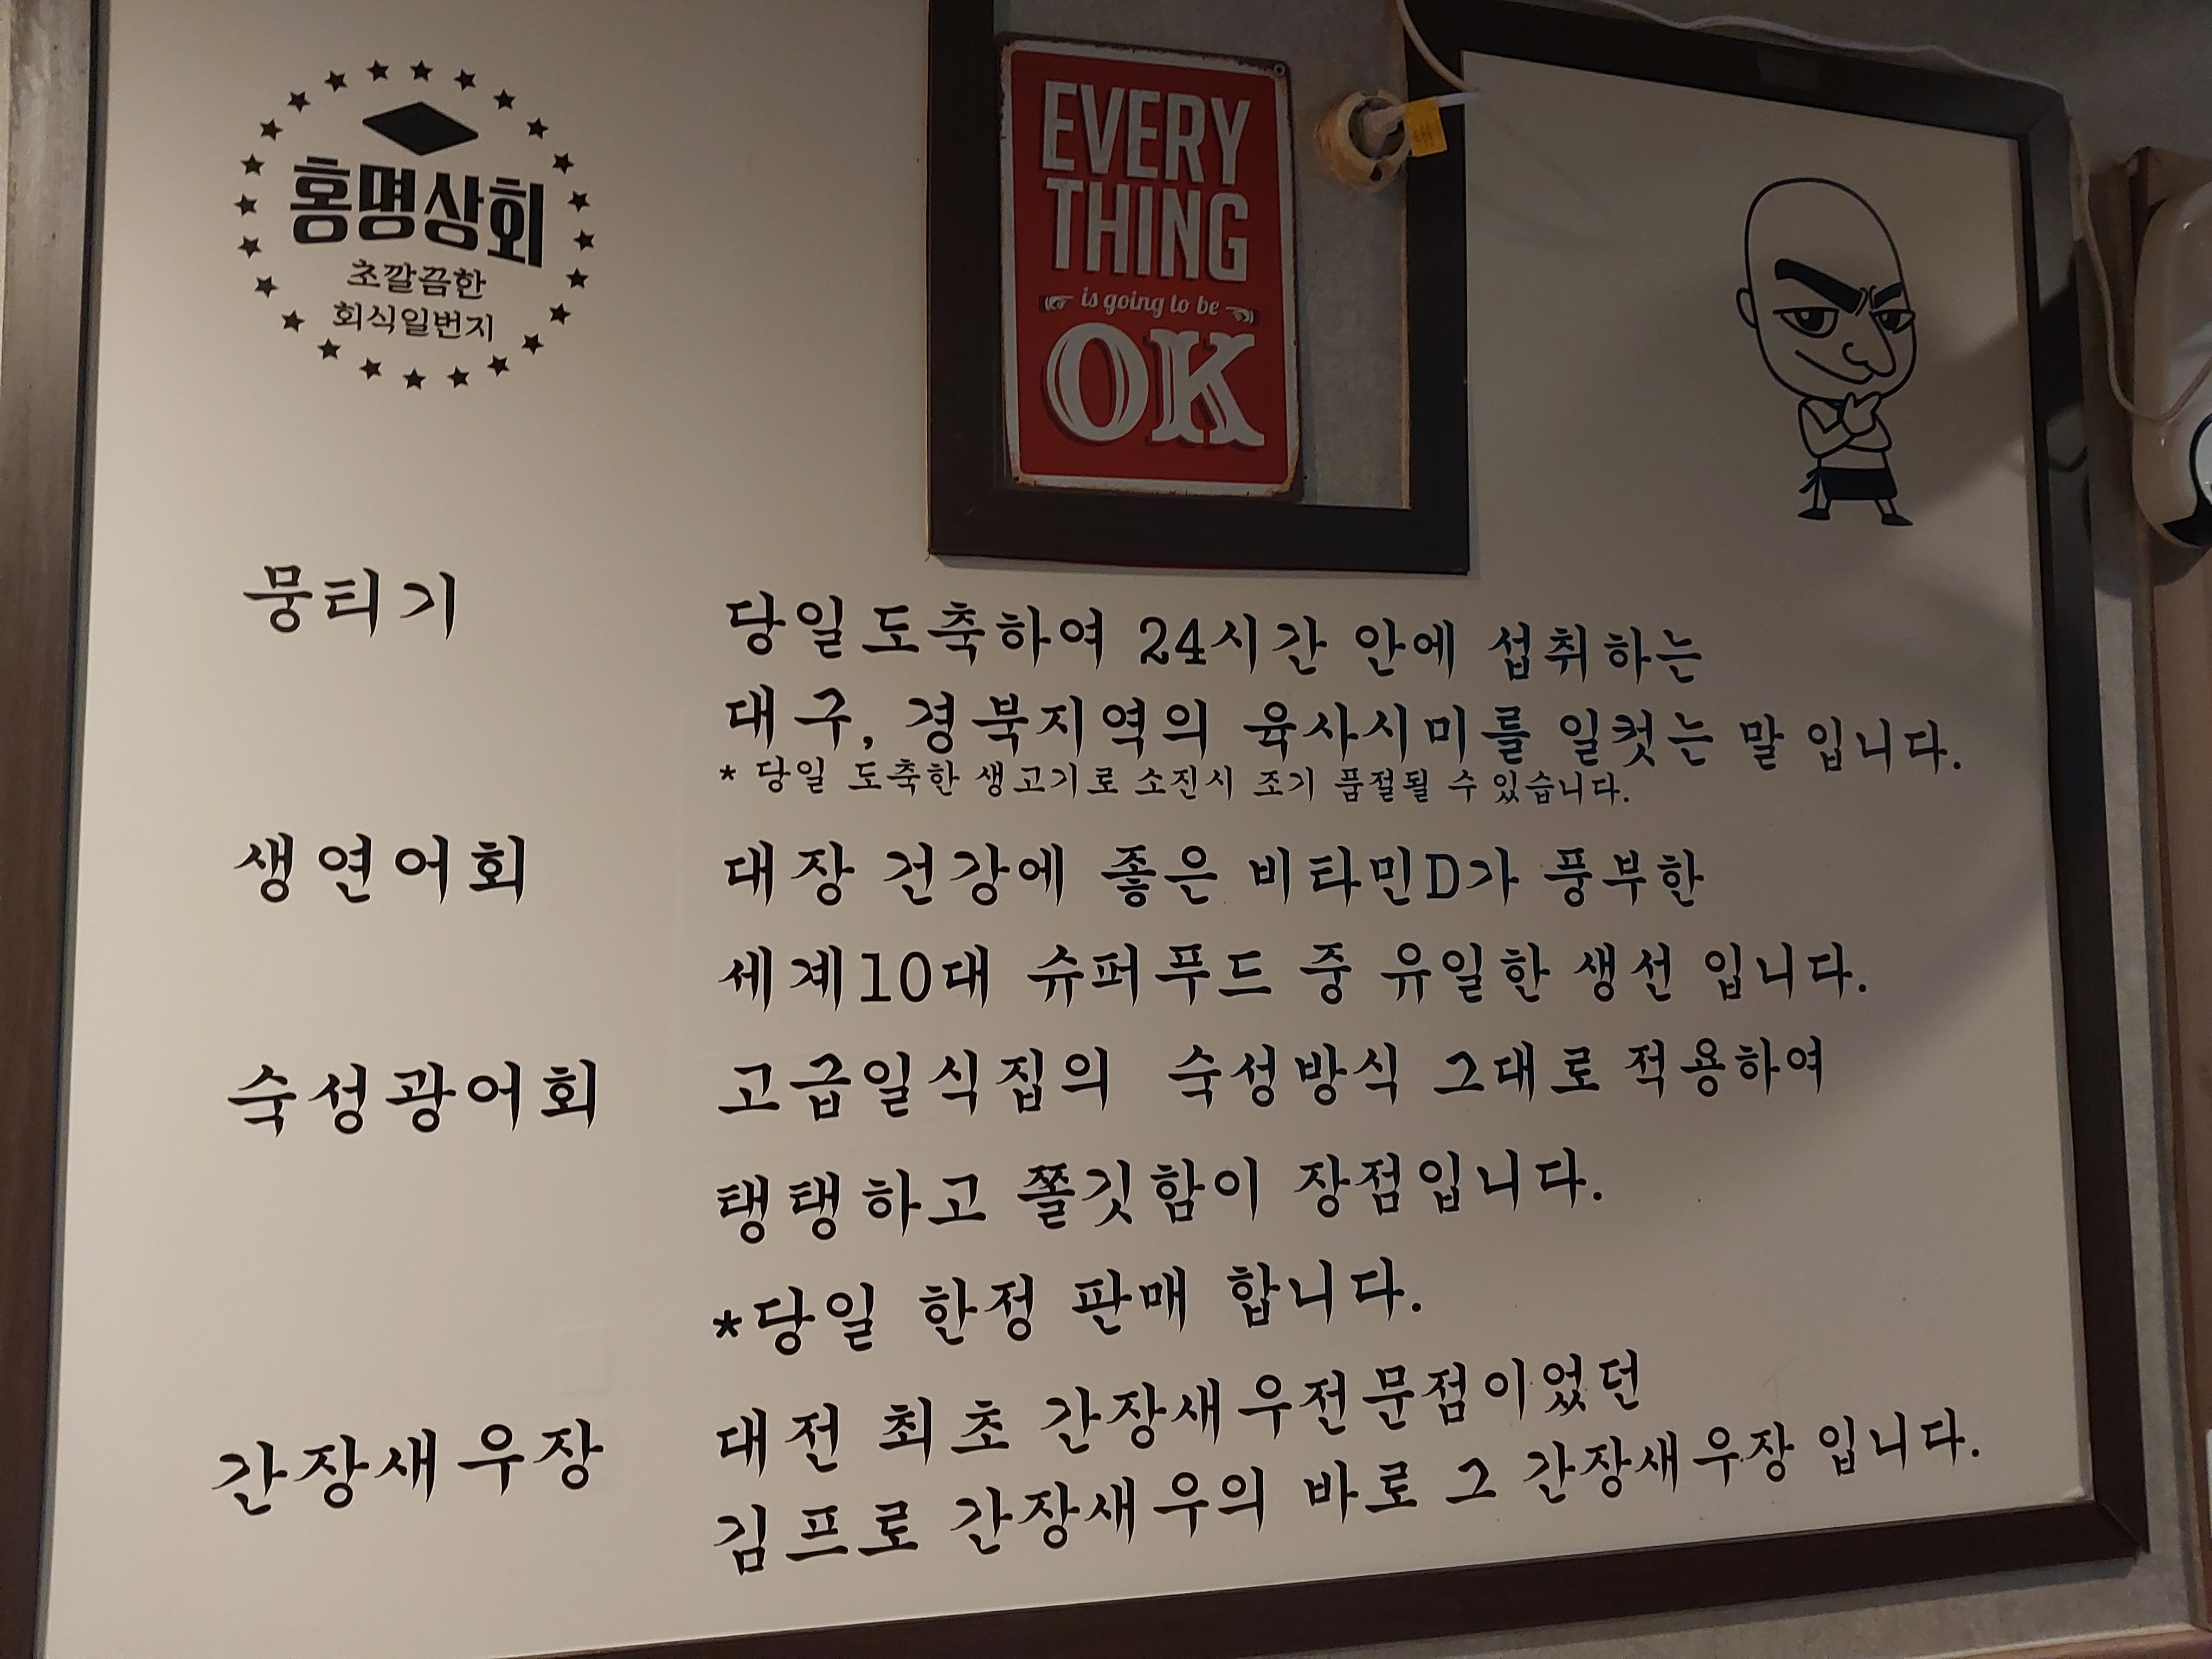 홍명상회
초깔끔한
회식일번지
EVERY
THING
is going to be
OK
뭉티기
당일도축하여 24시간 안에 섭취하는
대구, 경북지역의 육사시미를 일컷는 말 입니다.
* 당일 도축한 생고기로 소진시 조기 품절될 수 있습니다.
생연어회
대장 건강에 좋은 비타민D가 풍부한
세계10대 슈퍼푸드 중 유일한 생선 입니다.
숙성광어회
고급일식집의 숙성방식 그대로 적용하여
탱탱하고 쫄깃함이 장점입니다.
*당일 한정 판매 합니다.
간장새우장
대전 최초 간장새우전문점이었던
김프로 간장새우의 바로 그 간장새우장 입니다.